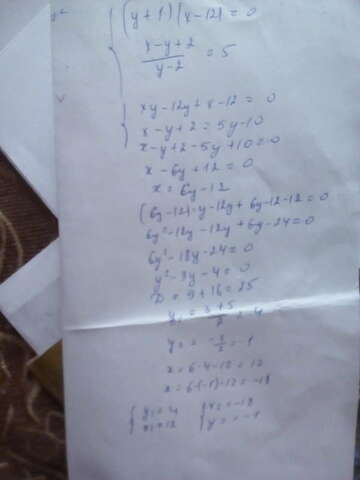 (y+1)(x-12)=0
x-y+2 / y-2 = 5
xy-12y+x-12=0
x-y+2=5y-10
x-y+2-5y+10=0
x-6y+12=0
x=6y-12
(6y-12)·y-12y+6y-12-12=0
6y²-12y-12y+6y-24=0
6y²-18y-24=0
y²-3y-4=0
D=9+16=25
y₁=3+5/2=4
y₂=-2/2=-1
x=6·4-12=12
x=6·(-1)-12=-18
{ y₁=4 { x=-18
{ x₁=12 { y=-1